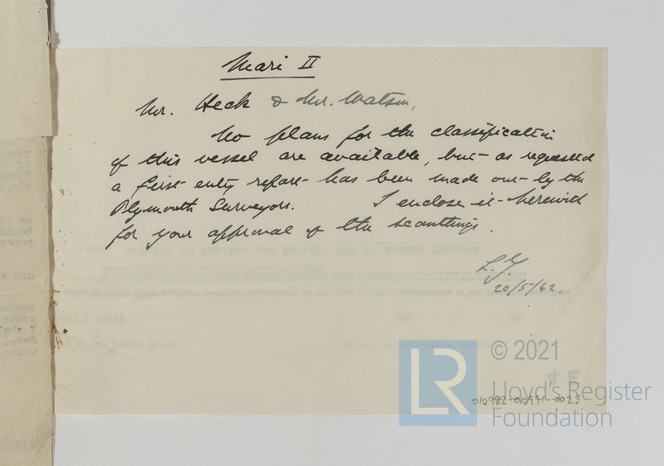 Mari II
Mr. Heck & Mr. Watson,
No plans for the classification
of this vessel are available, but as requested
a first entry report has been made out by the
Plymouth Surveyors. I enclose it herewith
for your approval of the scantlings.
20/5/62.
© 2021
LR
Lloyd's Register
Foundation
010982-010991-0025